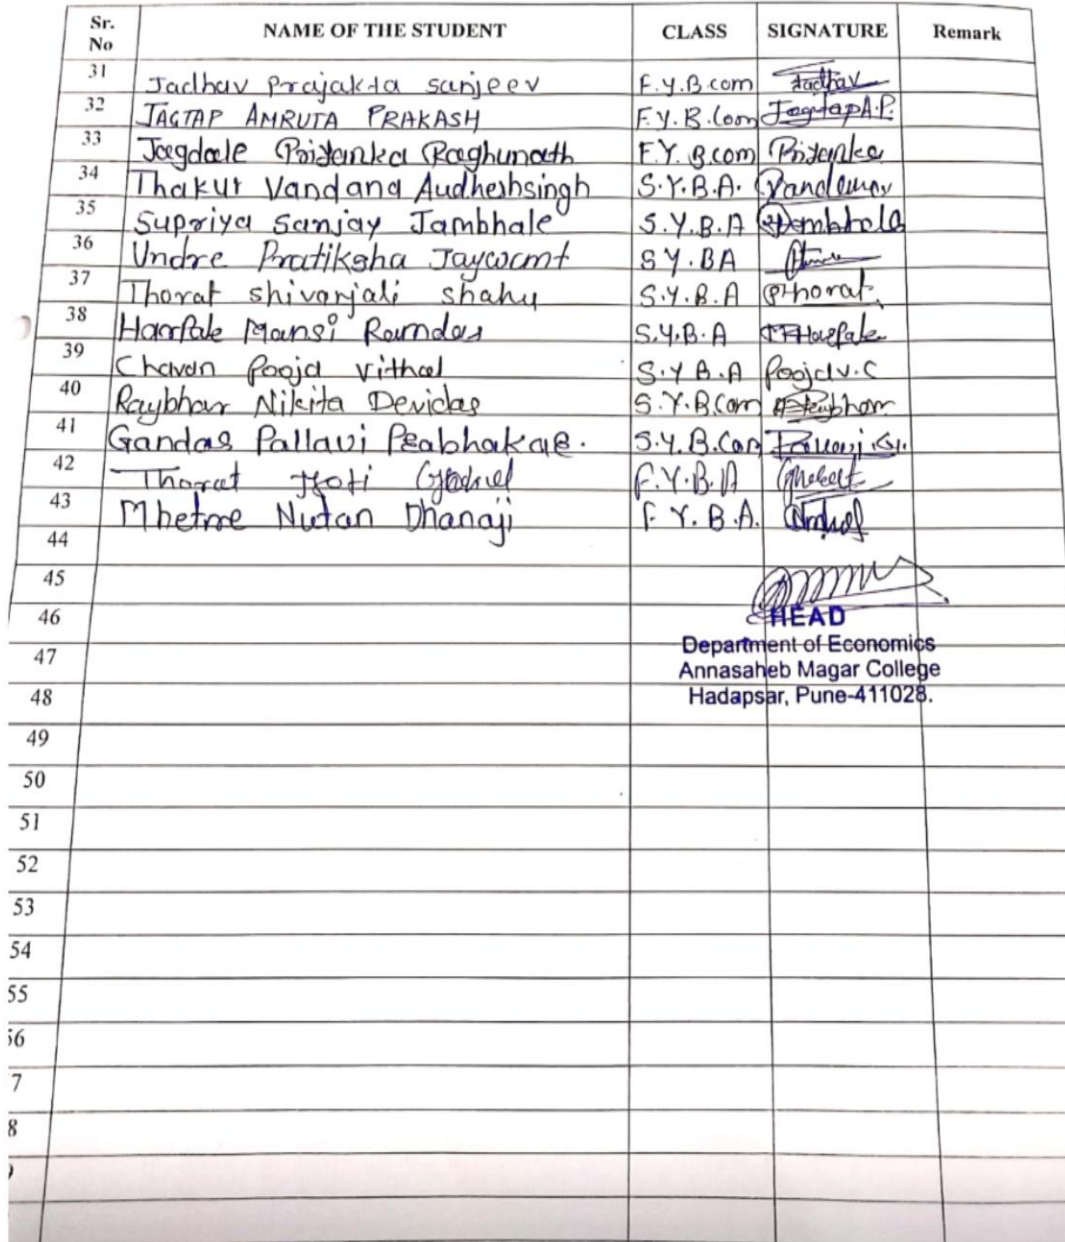 Sr. No NAME OF THE STUDENT CLASS SIGNATURE Remark
31 Jadhav Prajakta sanjeev F.Y.B.com Jadhav
32 JAGTAP AMRUTA PRAKASH F.Y.B.Com Jagtap A.P.
33 Jagdale Priyanka Raghunath F.Y.B.com Priyanka
34 Thakur Vandana Audheshsingh S.Y.B.A.
35 Supriya Sanjay Jambhale S.Y.B.A Jambhale
36 Undre Pratiksha Jaywant S Y.BA
37 Thorat shivanjali shahu S.Y.B.A Thorat
38 Harpale Mansi Ramdas S.Y.B.A Harpale
39 Chavan Pooja Vithal S.Y B.A Pooja V.C
40 Raybhar Nikita Devidas S.Y.B.Com
41 Gandas Pallavi Prabhakar. S.Y.B.Com
42 Thorat Jyoti F.Y.B.A
43 Mhetre Nutan Dhanaji F.Y.B.A.
44
45
46 HEAD
Department of Economics
47 Annasaheb Magar College
48 Hadapsar, Pune-411028.
49
50
51
52
53
54
55
56
7
8